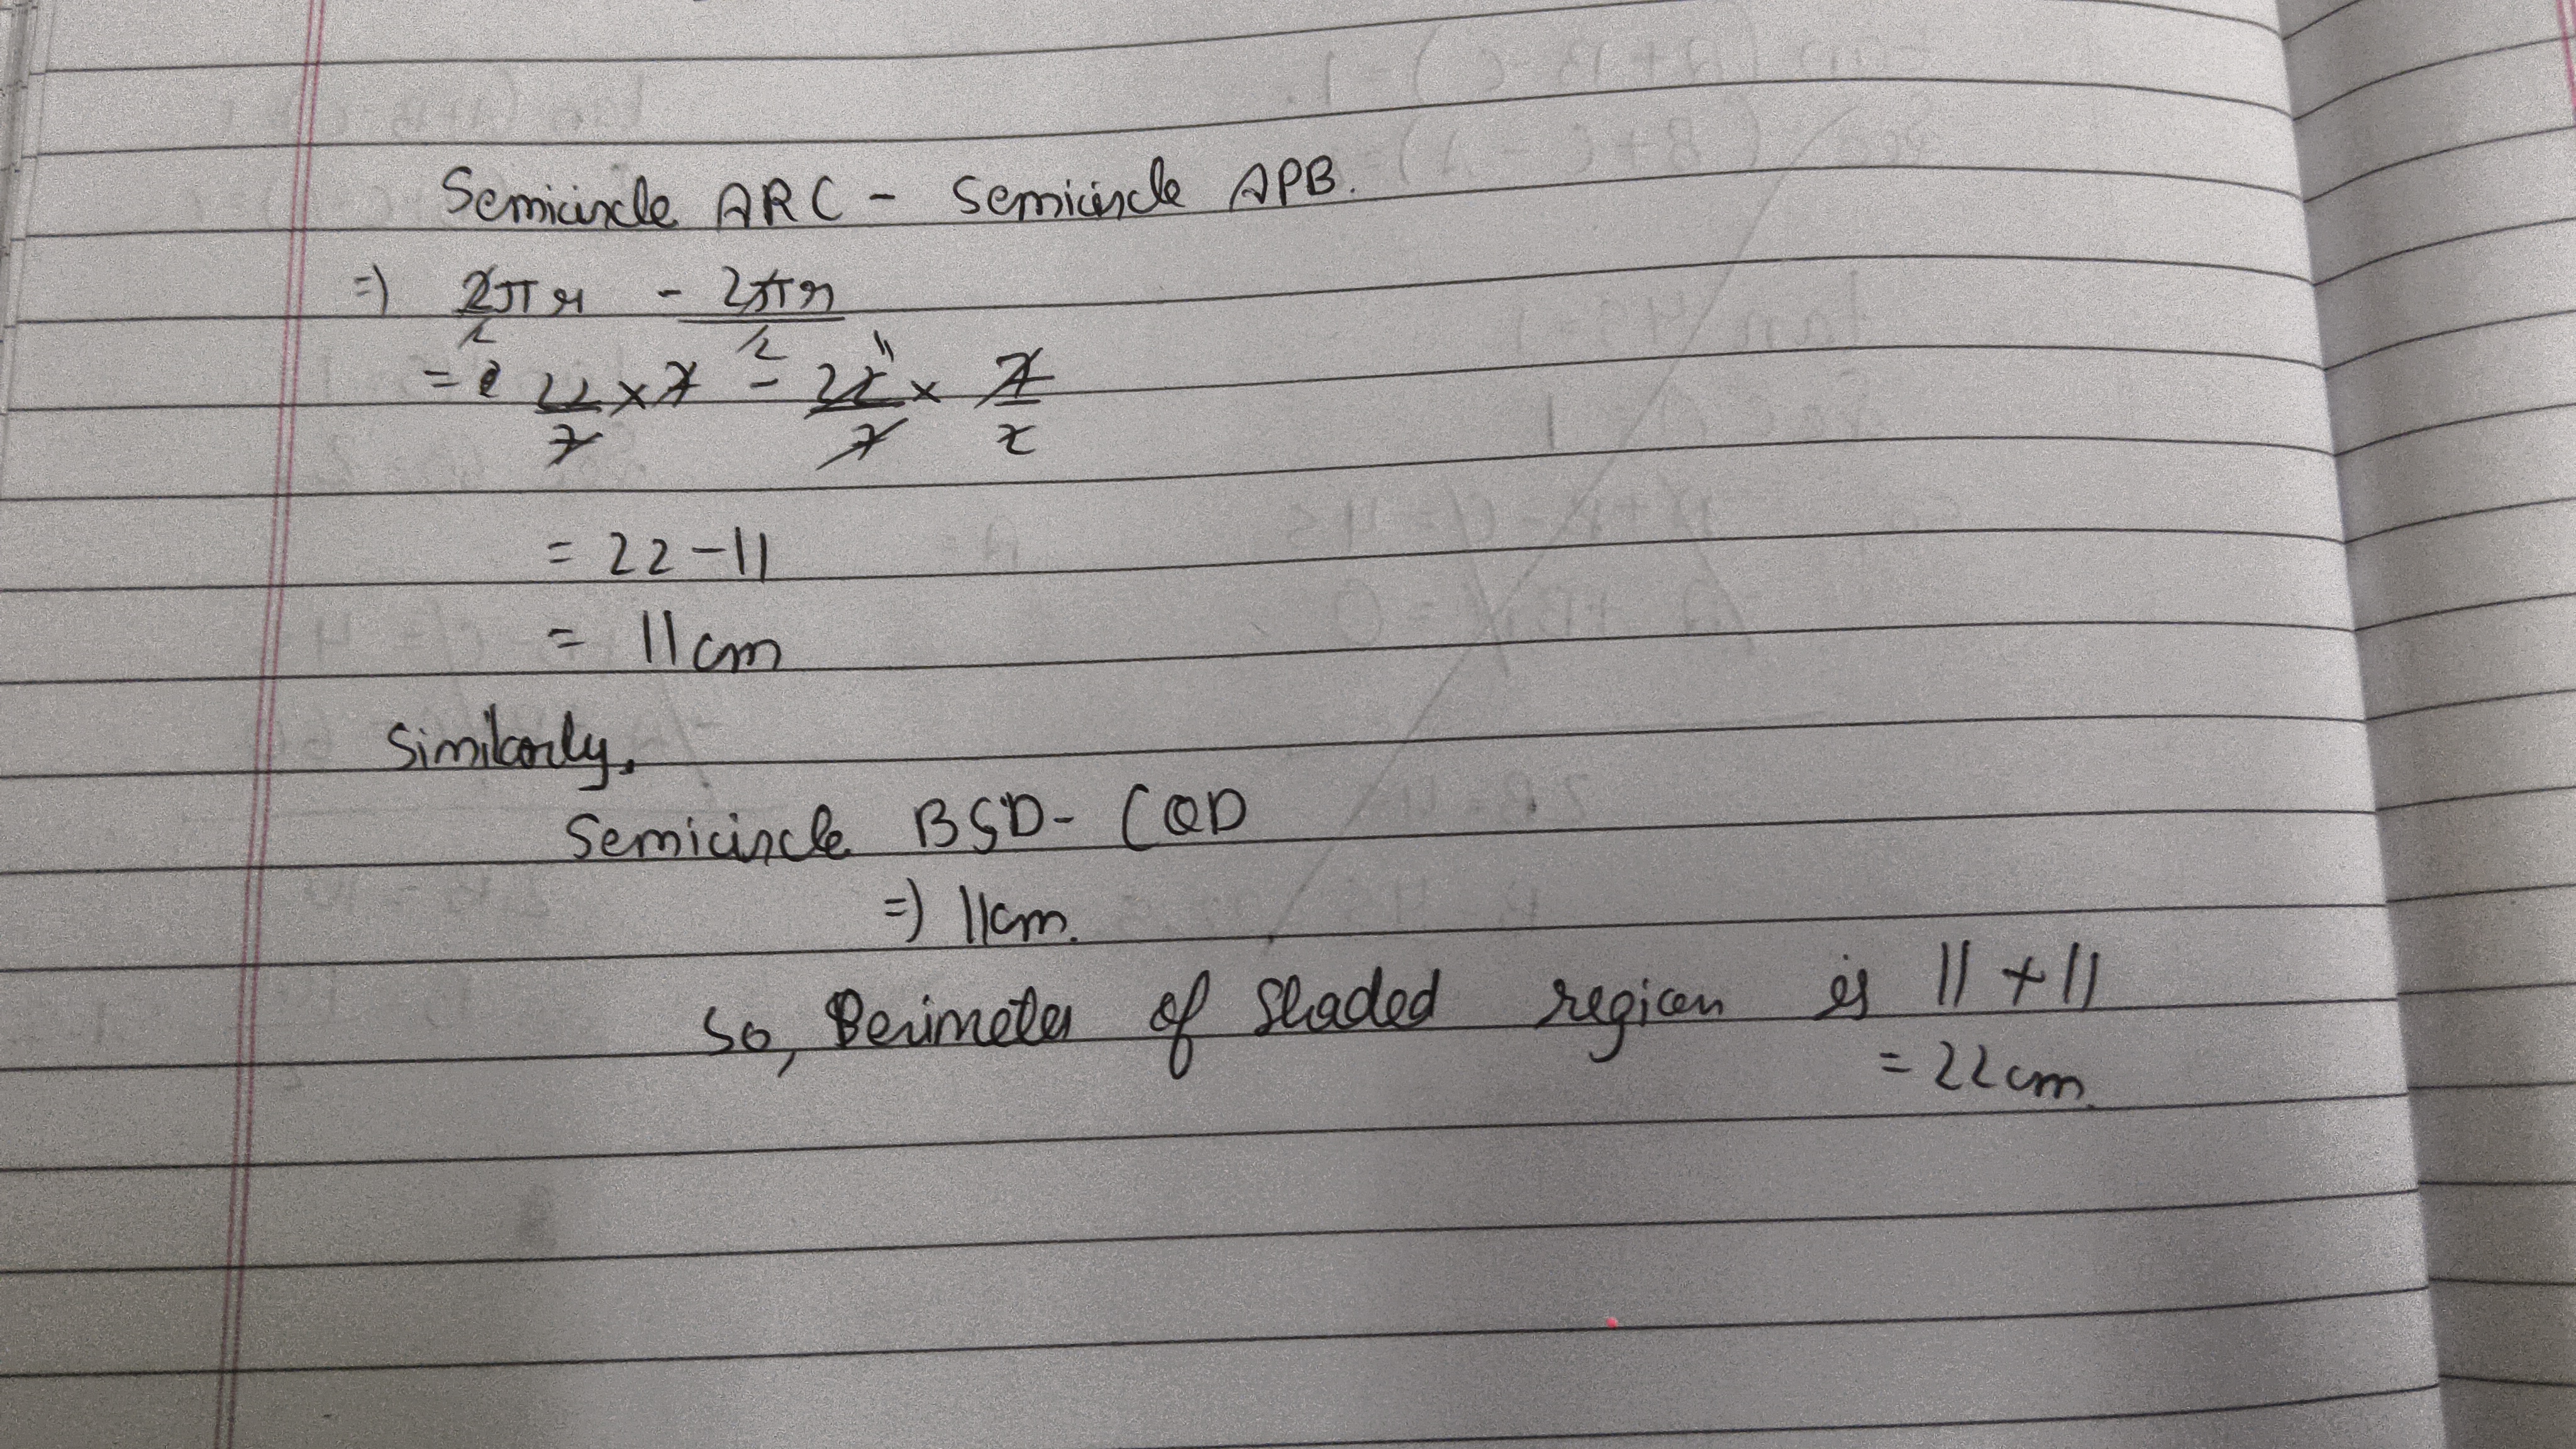 Semicircle ARC - Semicircle APB.
=) 2πr/2 - 2πr/2
= 22/7 × 7 - 22/7 × 7/2
11
= 22 - 11
= 11cm
Similarly,
Semicircle BSD - CQD
=) 11cm.
So, Perimeter of Shaded region is 11 + 11
= 22cm.